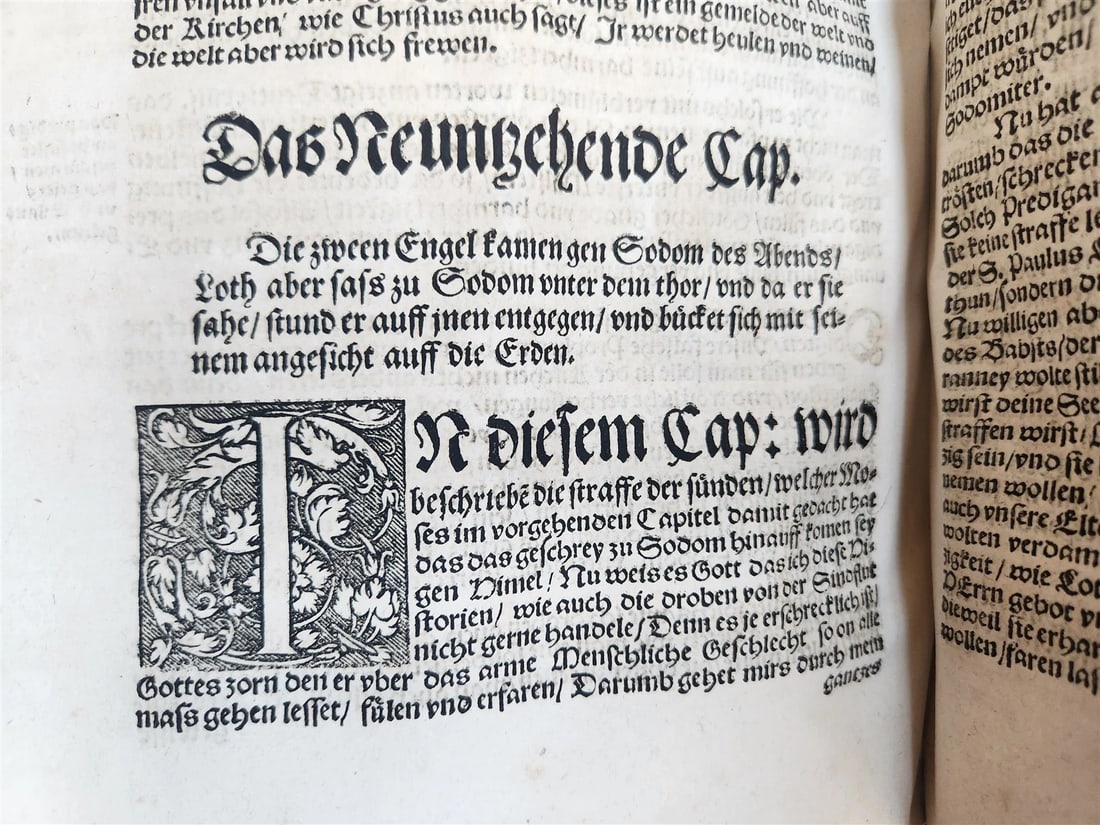 der Kirchen/ wie Christus auch sagt/ Jr werdet heulen vnd weinen/
die welt aber wird sich frewen.
Das Neuntzehende Cap.
Die zween Engel kamen gen Sodom des Abends/
Loth aber sass zu Sodom vnter dem thor/ vnd da er sie
sahe/ stund er auff jnen entgegen/ vnd bücket sich mit sei-
nem angesicht auff die Erden.
IN diesem Cap: wird
beschriebē die straffe der sünden/ welcher Mo-
ses im vorgehenden Capitel damit gedacht hat
das das geschrey zu Sodom hinauff komen sey
gen Himel/ Nu weis es Gott das ich diese Hi-
storien/ wie auch die droben von der Sindflut
nicht gerne handele/ Denn es je erschrecklich ist/
Gottes zorn den er vber das arme Menschliche Geschlecht so on alle
mass gehen lesset/ fülen vnd erfaren/ Darumb gehet mirs durch mein
gantzes
Sodomiter.
Nu hat
darumb das die
trösten/ schrecken
Solch Predigan
sie keine straffe
der S. Paulus
thun/ sondern
Nu willigen
des Babsts/ der
ranney wolte
wirst deine See
straffen wirst/
zig sein/ vnd sie
nemen wollen/
auch vnsere Elt
wolten verdam
igkeit/ wie Lot
HErrn gebot
dieweil sie erhar
wollen/ faren las